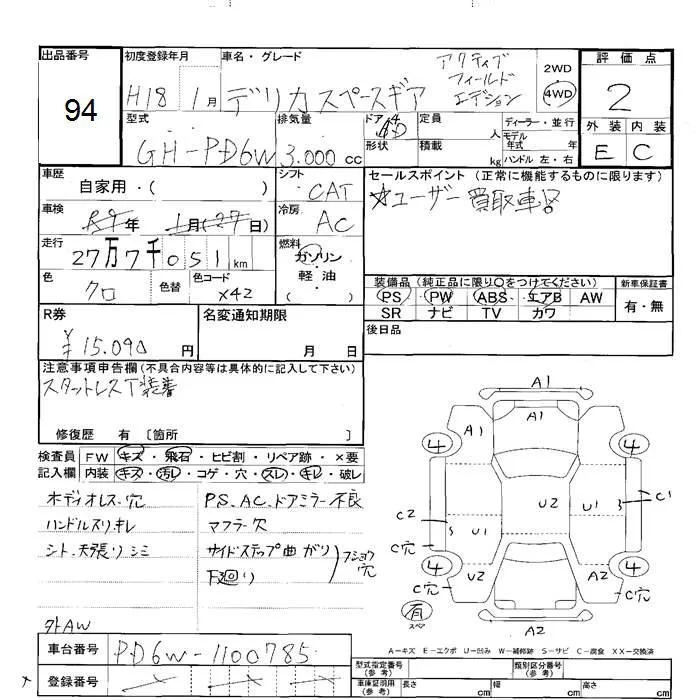 出品番号
94
初度登録年月
H18 1月
車名・グレード
デリカスペースギア
アクティブ
フィールド
エディション
2WD
4WD
評価点
2
外装 内装
E C
型式
GH-PD6W
排気量
3.000 cc
ドア 4
形状
定員 人
積載 kg
ディーラー・並行
モデル
年式 年
ハンドル 左・右
車歴
自家用・( )
シフト
CAT
車検
R9年 1月(27日)
冷房
AC
走行
27万7千051km
燃料
ガソリン
・
軽・油
( )
色
クロ
色替
色コード
X42
セールスポイント(正常に機能するものに限ります)
☆ユーザー買取車
装備品(純正品に限り○をつけてください)
PS PW ABS エアB AW
SR ナビ TV カワ
新車保証書
有・無
R券
¥15.090円
名変通知期限
月 日
後日品
注意事項申告欄(不具合内容等は具体的に記入して下さい)
スタットレスT装着
修復歴 有 〔箇所 〕
検査員
記入欄
FW キズ・飛石・ヒビ割・リペア跡・×要
内装 キズ・汚レ・コゲ・穴・スレ・キレ・破レ
ボディオレス.穴
ハンドルスリ.キレ
シト.天張リシミ
外AW
P.S.AC.ドアミラー不良
マフラー穴
サイドステップ曲ガリ
下廻リ
フショウ
穴
A1
A1
A1
4
4
C2
S
U1
U2
U1
S
C1
C穴
4
U2
A2
4
C穴
C穴
有
スペア
A2
A-キズ E-エクボ U-凹み W-補修跡 S-サビ C-腐食 XX-交換済
車台番号
PD6W-1100785
登録番号
型式指定番号
(参考)
類別区分番号
(参考)
車庫証明用
(参考)
長さ cm
幅 cm
高さ cm